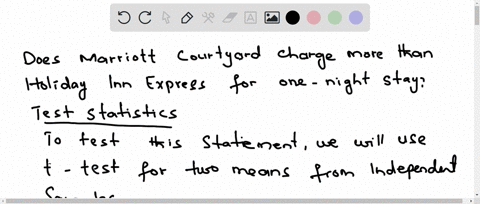 Does Marriott Courtyard charge more than
Holiday Inn Express for one-night stay?
Test Statistics
To test this statement, we will use
t-test for two means from Independent